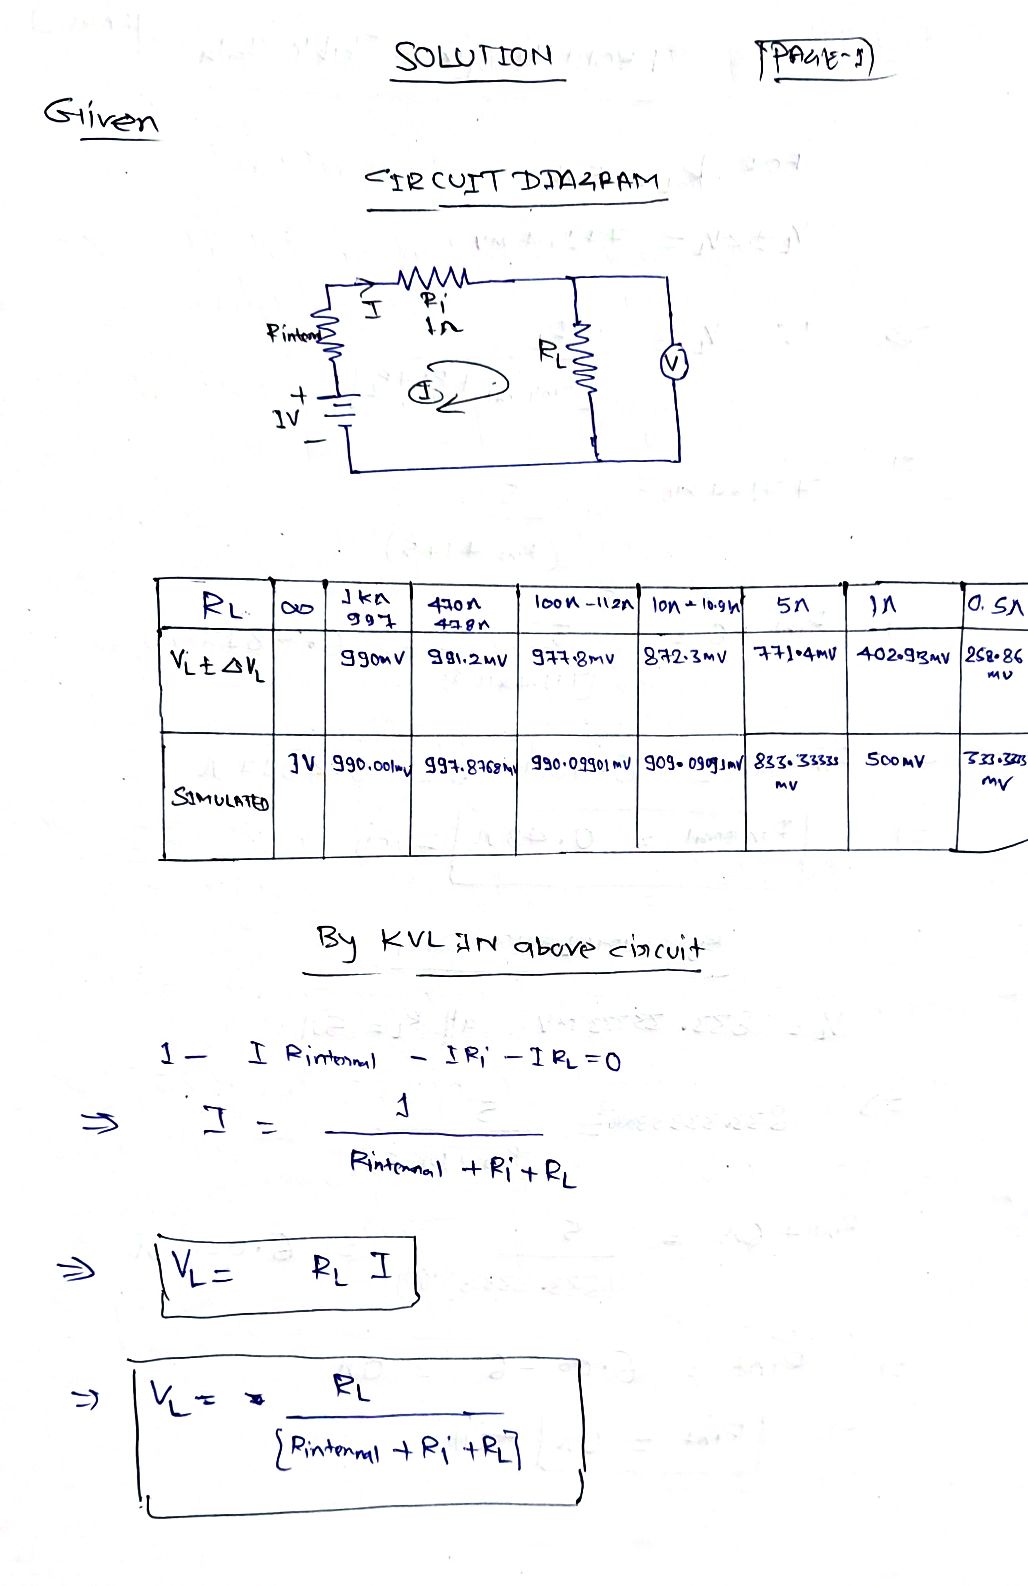 SOLUTION
PAGE-1
Given
CIRCUIT DIAGRAM
I
Ri
1Ω
Rintern
RL
V
I
+
1V
-
RL ∞ 1kΩ 997 470Ω 478Ω 100Ω -112Ω 10Ω - 10.9Ω 5Ω 1Ω 0.5Ω
VL ± ΔVL 990mV 991.2mV 977.8mV 872.3mV 771.4mV 402.93mV 258.86 mV
SIMULATED 1V 990.001mV 997.8768mV 990.09901mV 909.09091mV 833.33333 mV 500mV 333.3333 mV
By KVL IN above circuit
1 - I Rinternal - IRi - IRL = 0
⇒ I = 1 / Rinternal + Ri + RL
⇒ VL = RL I
⇒ VL = RL / [Rinternal + Ri + RL]